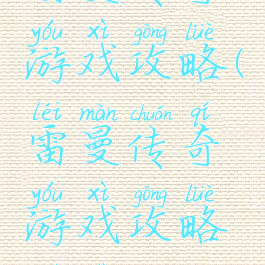 yóu xì gōng lüè
游戏攻略(
léi màn chuán qí
雷曼传奇
yóu xì gōng lüè
游戏攻略